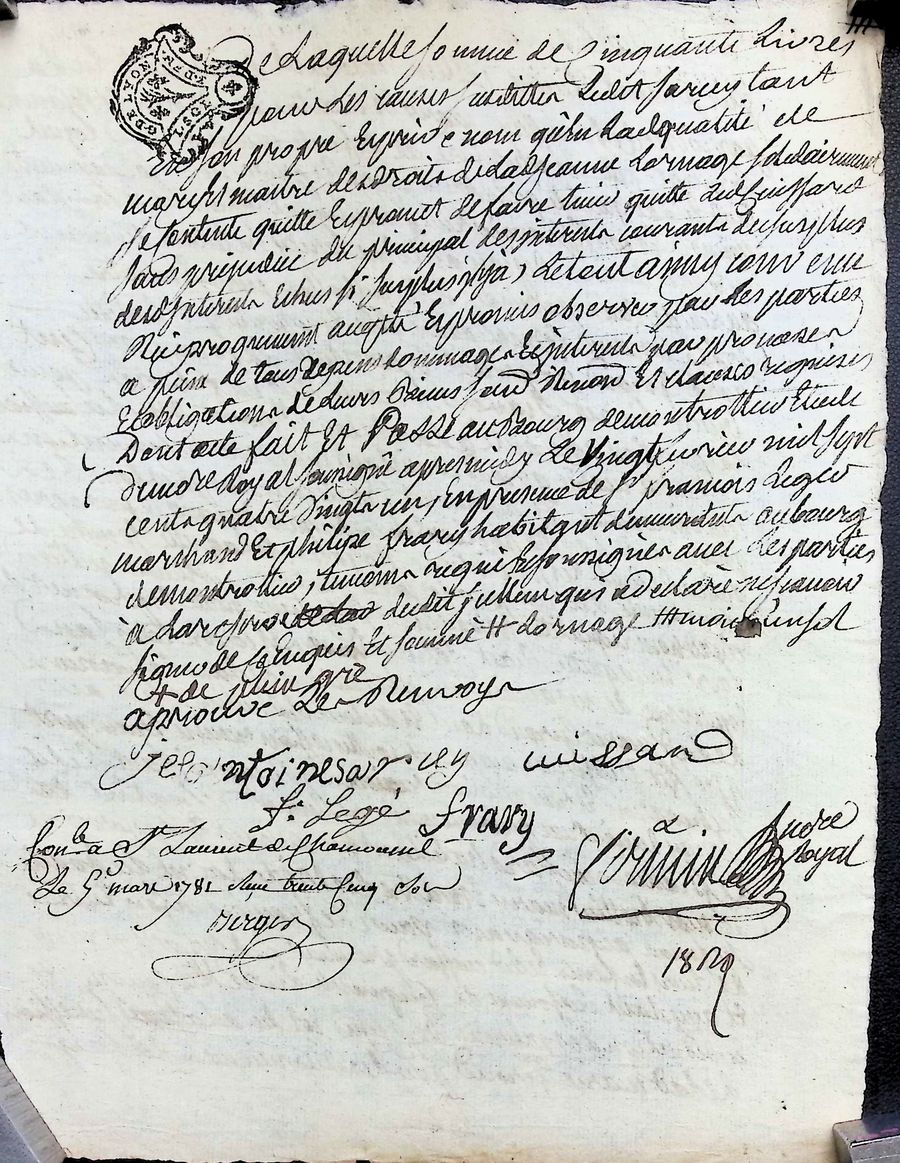 De Laquelle somme de Cinquante Livres
pour Les causes susdittes Ledit Sarcey tant
En son propre Et privé nom qu'En Laditte qualité de
mary Et maitre des droits de Lad Jeanne Lornage solidairement
se contente quitte Et promet de faire tenir quitte Led Cuissard
sans préjudice du principal des interets courants
des interets Echus si surplus il y a, Le tout ainsy convenu
Réciproquement accepté Et promis observer par Les parties
a peine de tous depens dommages Et interets par promesse
Et obligation de Leurs Biens
Dont acte fait Et Passé au Bourg de montrottier Etude
du nore Royal soussigné apres midy Le Vingt fevrier mil sept
cents quatre Vingts un, En presence de Sr françois Legée
marchand Et philipe frary habitants demeurants au bourg
de montrottier, temoins requis soussignés avec Les parties
à La reserve dudit qui a declaré ne sçavoir
signer de ce Enquis Et sommé # Lornage
+ de plein gré
aprouvé Les Renvoys
je antoine sarcey cuissard
f. Legé
frary
André
Royal
Conlé a St Laurent de Chamousset
Le 5e mars 1781 Reçu trente Cinq sols
Berger